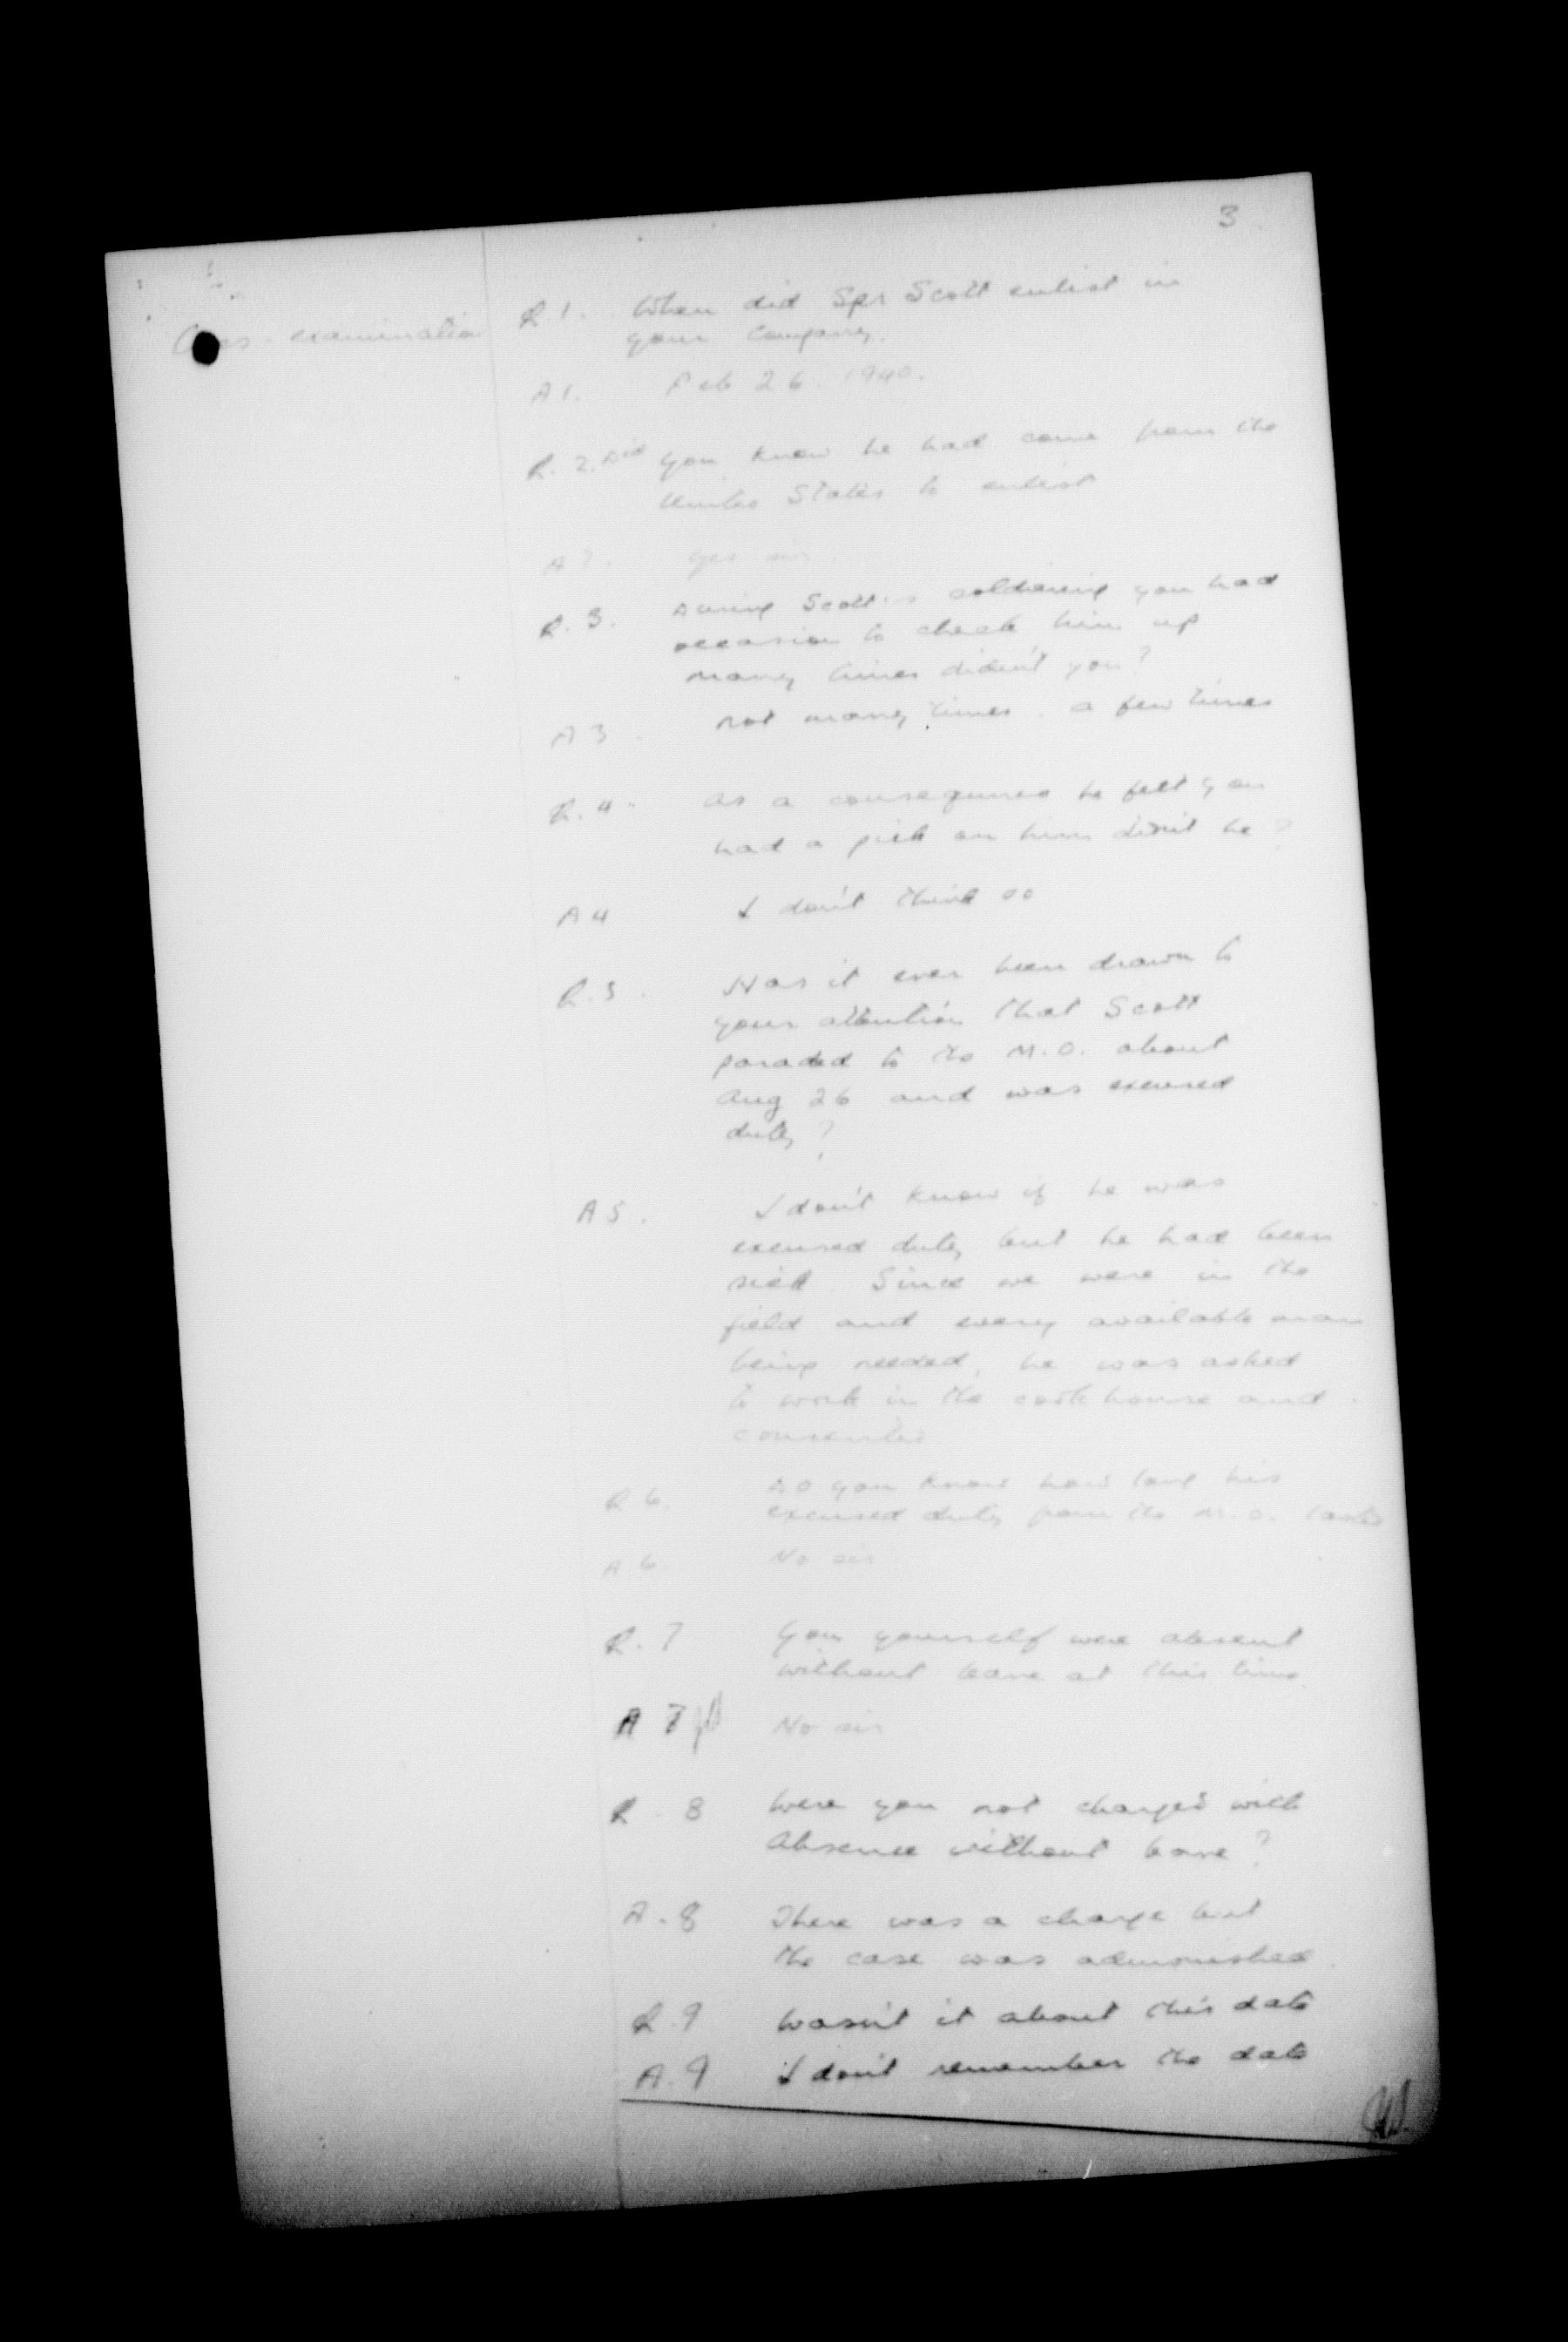 3
Cross-examination
Q. 1. When did Spr Scott enlist in
your Company.
A 1. Feb 26. 1940.
Q. 2. Did you know he had come from the
United States to enlist
A 2. Yes sir.
Q. 3. During Scott's soldiering you had
occasion to check him up
many times didn't you?
A 3. not many times. a few times
Q. 4. As a consequence he felt you
had a pick on him didn't he?
A 4 I don't think so
Q. 5. Has it ever been drawn to
your attention that Scott
paraded to the M.O. about
Aug 26 and was excused
duty?
A 5. I don't know if he was
excused duty but he had been
sick. Since we were in the
field and every available man
being needed, he was asked
to work in the cook house and
consented
Q 6. Do you know how long his
excused duty from the M.O. lasted
A 6. No sir
Q. 7 You yourself were absent
without leave at this time
A 7 No sir
Q. 8 Were you not charged with
Absence without leave?
A. 8 There was a charge but
the case was admonished.
Q. 9 Wasn't it about this date
A. 9 I don't remember the date